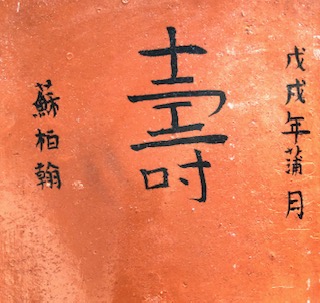 戊戌年蒲月
壽
蘇柏翰